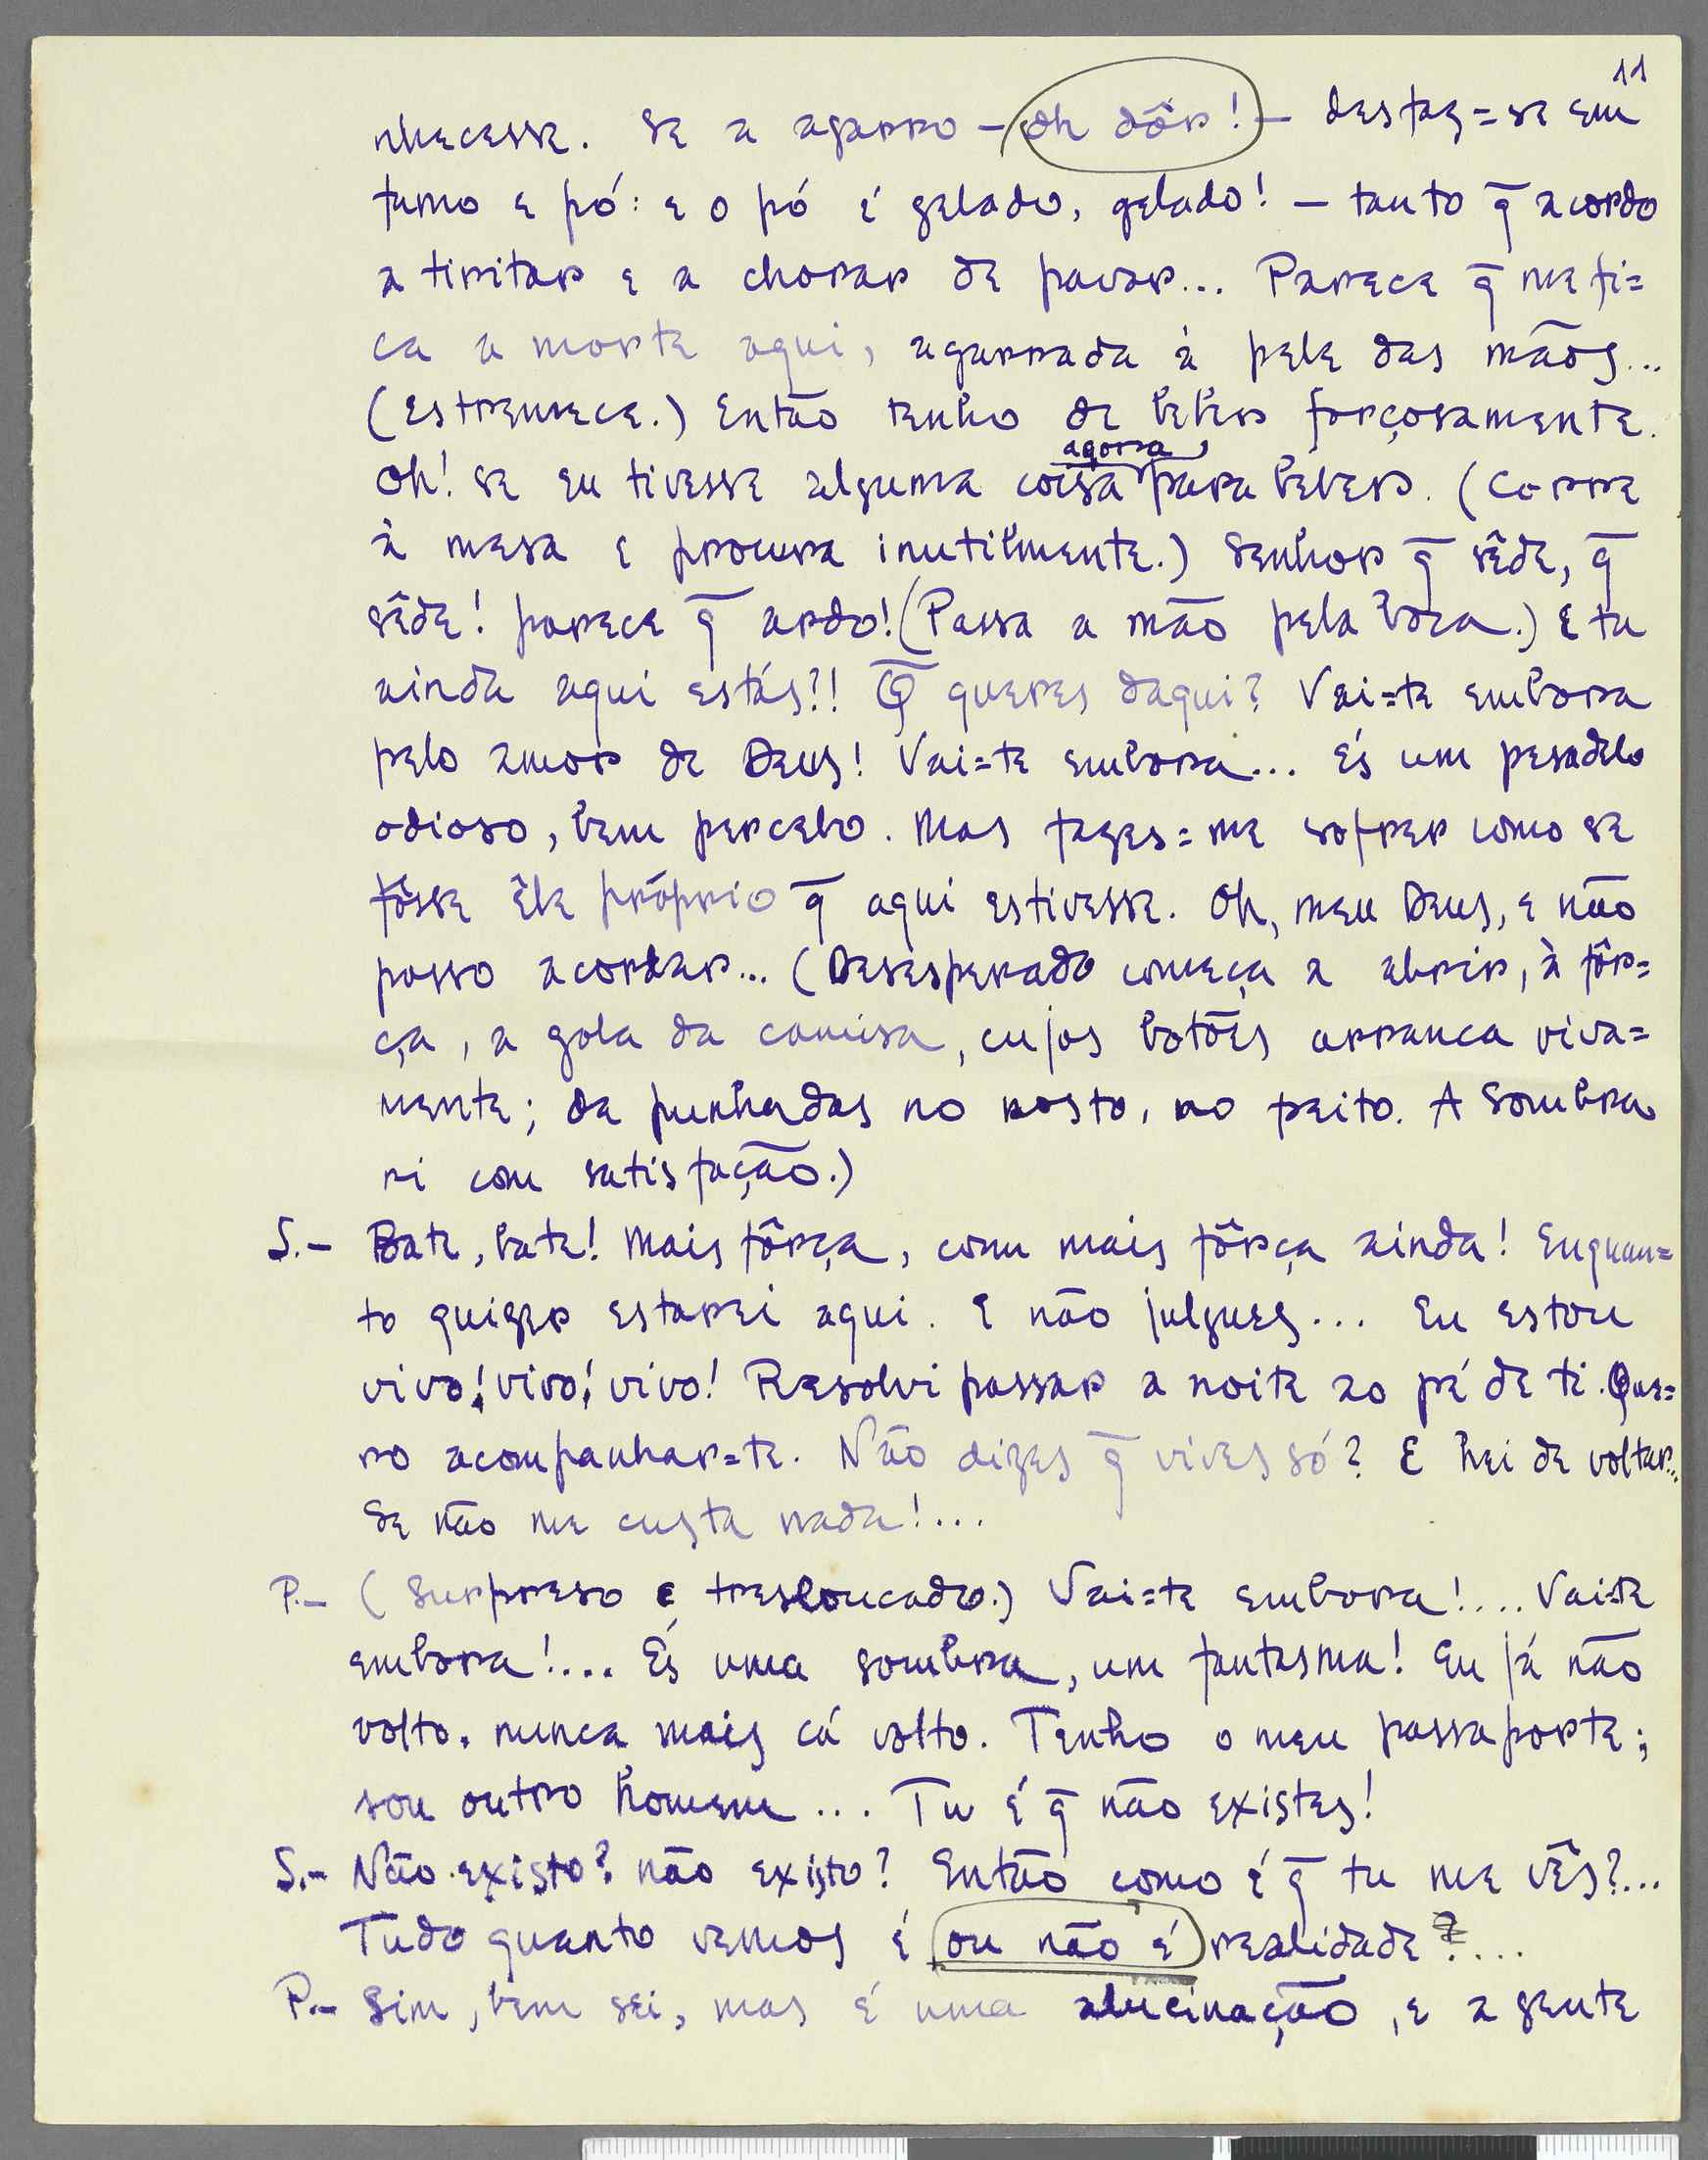 11
nhecesse. Se a agarro — oh dôr! — desfaz=se em
fumo e pó: e o pó é gelado, gelado! — tanto q̄ acordo
a tiritar e a chorar de pavor... Parece q̄ me fi=
ca a morte aqui, agarrada à pele das mãos...
(Estremece.) Então tenho de beber forçosamente.
agora
Oh! se eu tivesse alguma coisa para beber. (Corre
à mesa e procura inutilmente.) Senhor q̄ sêde, q̄
sêde! parece q̄ ardo! (Passa a mão pela boca.) E tu
ainda aqui estás?! Q̄ queres daqui? Vai=te embora
pelo amor de Deus! Vai=te embora... És um pesadelo
odioso, bem percebo. Mas fazes=me sofrer como se
fôsse êle próprio q̄ aqui estivesse. Oh, meu Deus, e não
posso acordar... (Desesperado começa a abrir, à fôr=
ça, a gola da camisa, cujos botões arranca viva=
mente; da punhadas no rosto, no peito. A Sombra
ri com satisfação.)
S.— Bate, bate! Mais fôrça, com mais fôrça ainda! Enquan=
to quizer estarei aqui. E não julgues... Eu estou
vivo! vivo! vivo! Resolvi passar a noite ao pé de ti. Que=
ro acompanhar=te. Não dizes q̄ vives só? E hei de voltar...
Se não me custa nada!...
P.— (Surpreso e tresloucado.) Vai=te embora!.... Vai=te
embora!.... És uma sombra, um fantasma! Eu já não
volto, nunca mais cá volto. Tenho o meu passaporte;
sou outro homem... Tu é q̄ não existes!
S.— Não existo? não existo? Então como é q̄ tu me vês?...
Tudo quanto vemos é ou não é realidade?....
P.— Sim, bem sei, mas é uma alucinação, e a gente